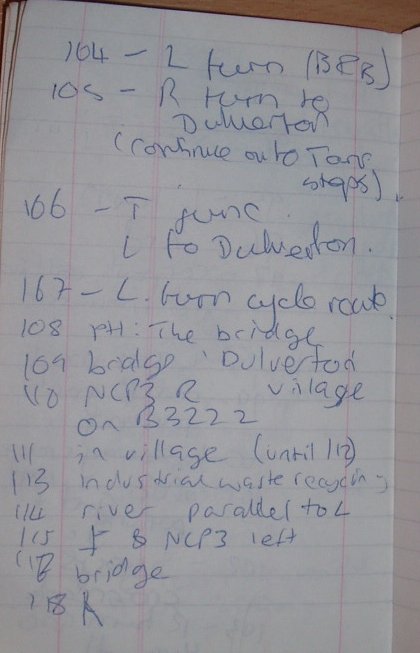 104 - L turn (B&B)
105 - R turn to
Dulverton
(continue onto Tarr
steps).
106 - T junc.
L to Dulverton.
167 - L. turn cycle route.
108 PH: The bridge
109 bridge, Dulverton
110 NCP3 R village
on B3222
111 in village (until 112)
113 industrial waste recycling
114 river parallel to L
115 & NCP3 left
bridge
118